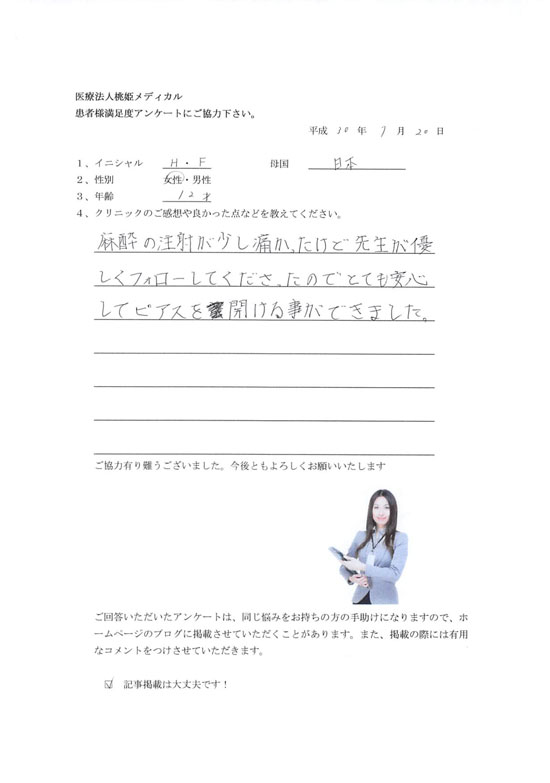 医療法人桃姫メディカル
患者様満足度アンケートにご協力下さい。
平成 30 年 7 月 20 日
1、イニシャル H・F 母国 日本
2、性別 女性・男性
3、年齢 12才
4、クリニックのご感想や良かった点などを教えてください。
麻酔の注射が少し痛かったけど先生が優
しくフォローしてくださったのでとても安心
してピアスを開ける事ができました。
ご協力有り難うございました。今後ともよろしくお願いいたします
ご回答いただいたアンケートは、同じ悩みをお持ちの方の手助けになりますので、ホ
ームページのブログに掲載させていただくことがあります。また、掲載の際には有用
なコメントをつけさせていただきます。
☑ 記事掲載は大丈夫です！